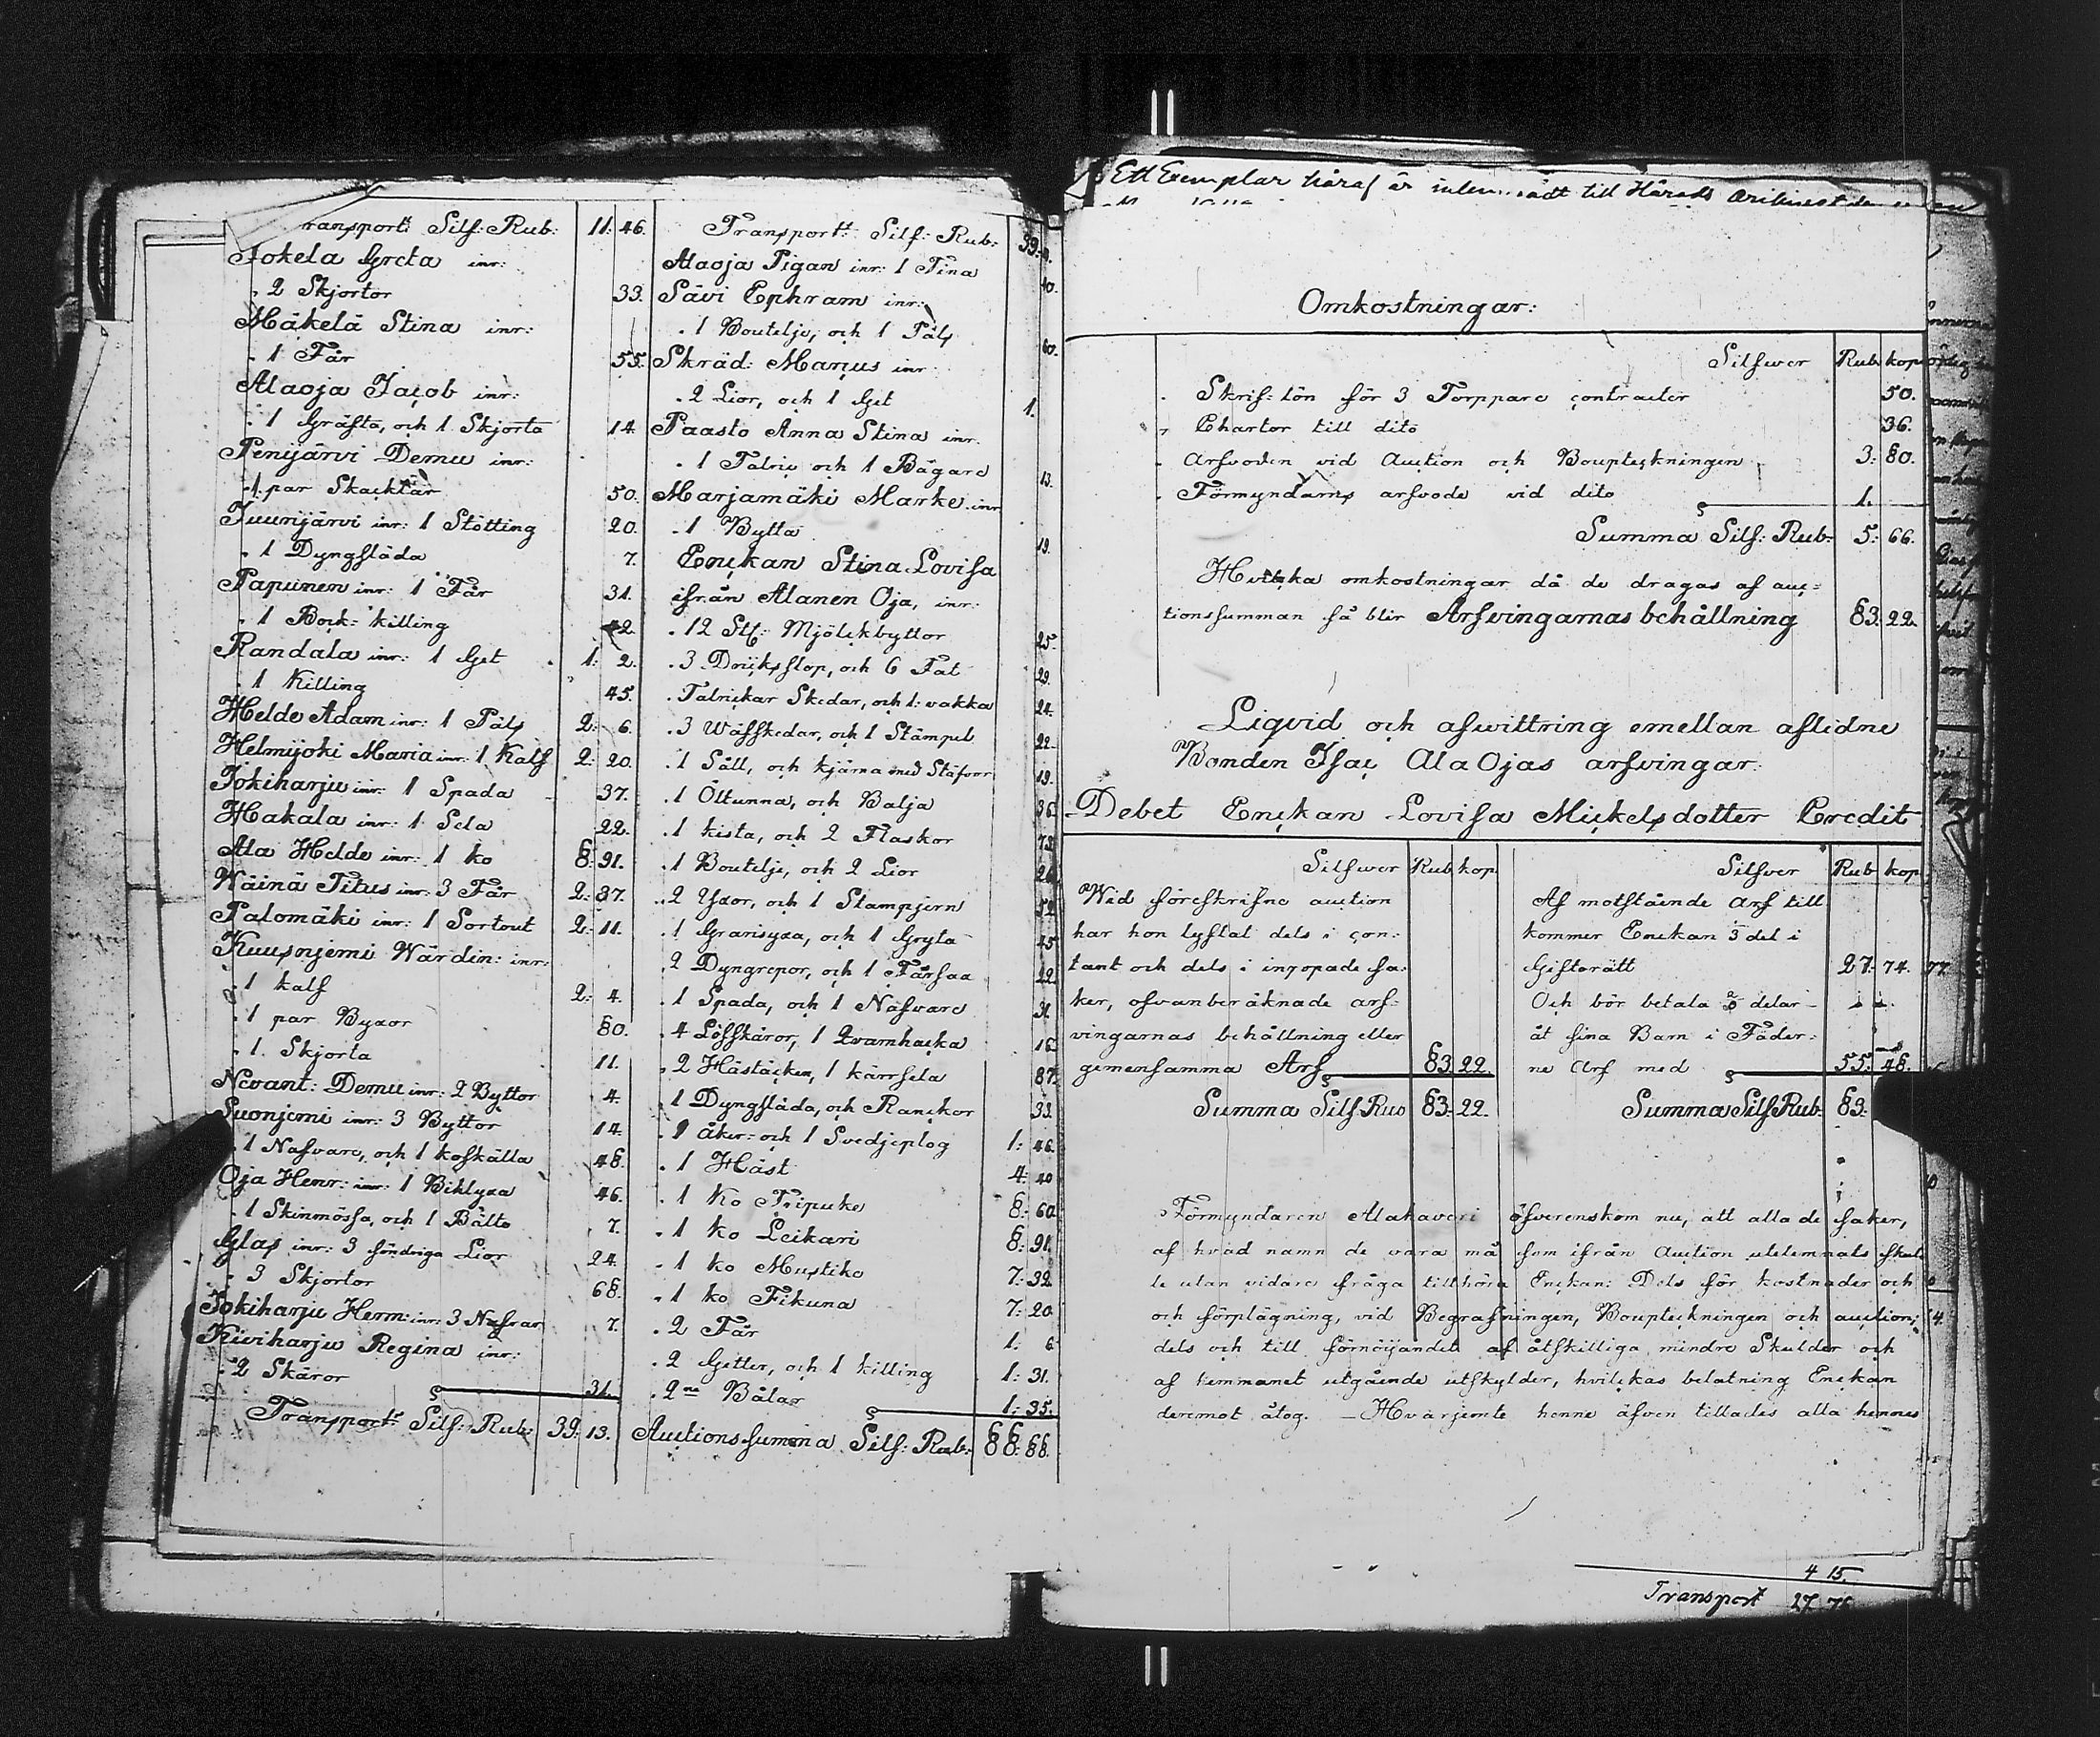 ransport: Silf: Rub: 11: 46.
Jokela Greta inr:
. 2 Skjortor 33.
Mäkelä Stina inr:
. 1 Får 55.
Alaoja Jacob inr:
. 1 Gräfta, och 1 Skjorta 14.
Penijärvi Demu inr:
. 1 par Skacklar 50.
Juurijärvi inr: 1 Stötting 20.
. 1 Dyngsläda 7.
Papunen inr: 1 Får 31.
. 1 Bock-killing 42.
Randala inr: 1 Get 1: 2.
. 1 Killing 45.
Helde Adam inr: 1 Päls 2: 6.
Helmijoki Maria inr: 1 Kalf 2: 20.
Jokiharju inr: 1 Spada 37.
Hakala inr: 1 Sela 22.
Ala Helde inr: 1 ko 8: 91.
Wäinä Titus inr: 3 Får 2: 87.
Palomäki inr: 1 Sortout 2: 11.
Kuusnjemi Wärdin: inr:
. 1 kalf 2: 4.
. 1 par Byxor 80.
. 1. Skjorta 11.
Nevant: Demu inr: 2 Byttor 4.
Suonjemi inr: 3 Byttor 14.
. 1 Nafvare, och 1 koskälla 48.
Oja Henr: inr: 1 Bilyxa 46.
. 1 Skinmössa, och 1 Bälte 7.
Glas inr: 3 söndriga Lior 24.
. 3 Skjortor 68.
Jokiharju Herm: inr: 3 Nafrar 7.
Kiviharju Regina inr:
. 2 Skäror 31.
Transport: Silf: Rub: 39: 13.
Transport: Silf: Rub: 39:
Alaoja Pigan inr: 1 Tina 10.
Sävi Ephram inr:
. 1 Boutelje, och 1 Päls 60.
Skräd: Marcus inr:
. 2 Lior, och 1 Get 1.
Paasto Anna Stina inr.
. 1 Talric och 1 Bägare 13.
Marjamäki Marke inr
. 1 Bytta 19.
Enckan Stina Lovisa
ifrån Alanen Oja, inr:
. 12 St: Mjölckbyttor 25.
. 3 Dricksstop, och 6 Fat 29.
. Talrickar Skedar, och 1: vakka 24.
. 3 Wäfskedar, och 1 Stämpel 22.
. 1 Såll, och kjärna med Stäfvor 19.
. 1 Öltunna, och Balja 36.
. 1 kista, och 2 Flaskor
. 1 Boutelje, och 2 Lior
. 2 Yxor, och 1 Stampjern 52.
. 1 Grarisyxa, och 1 Gryta 45.
. 2 Dyngrepor, och 1 Fårsax 22.
. 1 Spada, och 1 Nafvare 31.
. 4 Löfskäror, 1 Qvarnhacka 16.
. 2 Hästäcken, 1 kärrsela 87.
. 1 Dyngsläda, och Ranckor 33.
. 1 åker- och 1 Svedjeplog 1: 46.
. 1 Häst 4: 40
. 1 ko Tripuke 8: 60
. 1 ko Leikari 8: 91.
. 1 ko Mustike 7: 32.
. 1 ko Fikuna 7: 20
. 2 Får 1: 6
. 2 Getter, och 1 killing 1: 31.
. 2ne Båtar 1: 35.
Auctions summa Silf: Rub: 88: 88.
Ett Exemplar häraf är inlemnadt till Härads
Omkostningar:
Silfwer Rub kop
. Skrif-lön för 3 Torppare contracter 50.
. Chartor till dito 36.
. Arfvoden vid Auction och Boupteckningen 3: 80.
. Förmyndarns arfvode vid dito 1.
Summa Silf: Rub: 5: 66.
Hvilcka omkostningar då de dragas af auc-
tionssumman så blir Arfvingarnas behållning 83: 22.
Liqvid och afwittring emellan aflidne
Bonden Isac Ala Ojas arfvingar:
Debet Enckan Lovisa Mickelsdotter Credit
Silfwer Rub kop
Wid föreskrifne auction
har hon lyftat dels i con-
tant och dels i inropade sa-
ker, ofvanberäknade arf-
vingarnas behållning eller
gemensamma Arf 83 22.
Summa Silf: Rub 83: 22.
Silfver Rub kop
Af motstående Arf till
kommer Enckan 1/3 del i
Giftorätt 27. 74.
Och bör betala 2/3 delar
åt sina Barn i Fäder-
ne Arf med 55: 48.
Summa Silf Rub: 83:
Förmyndaren Alakaveri öfverenskom nu, att alla de saker,
af hvad namn de vara må som ifrån Auction utelemnats skul
le utan vidare fråga tillhöra Enckan: Dels för kostnader och
och förplägning, vid Begrafningen, Boupteckningen och auction;
dels och till förnöijandet af åtskilliga mindre Skulder och
af hemmanet utgående utskylder, hvilckas betalning Enckan
deremot åtog. — Hvarjemte henne äfven tillades alla hennes
4 15.
Transport 27